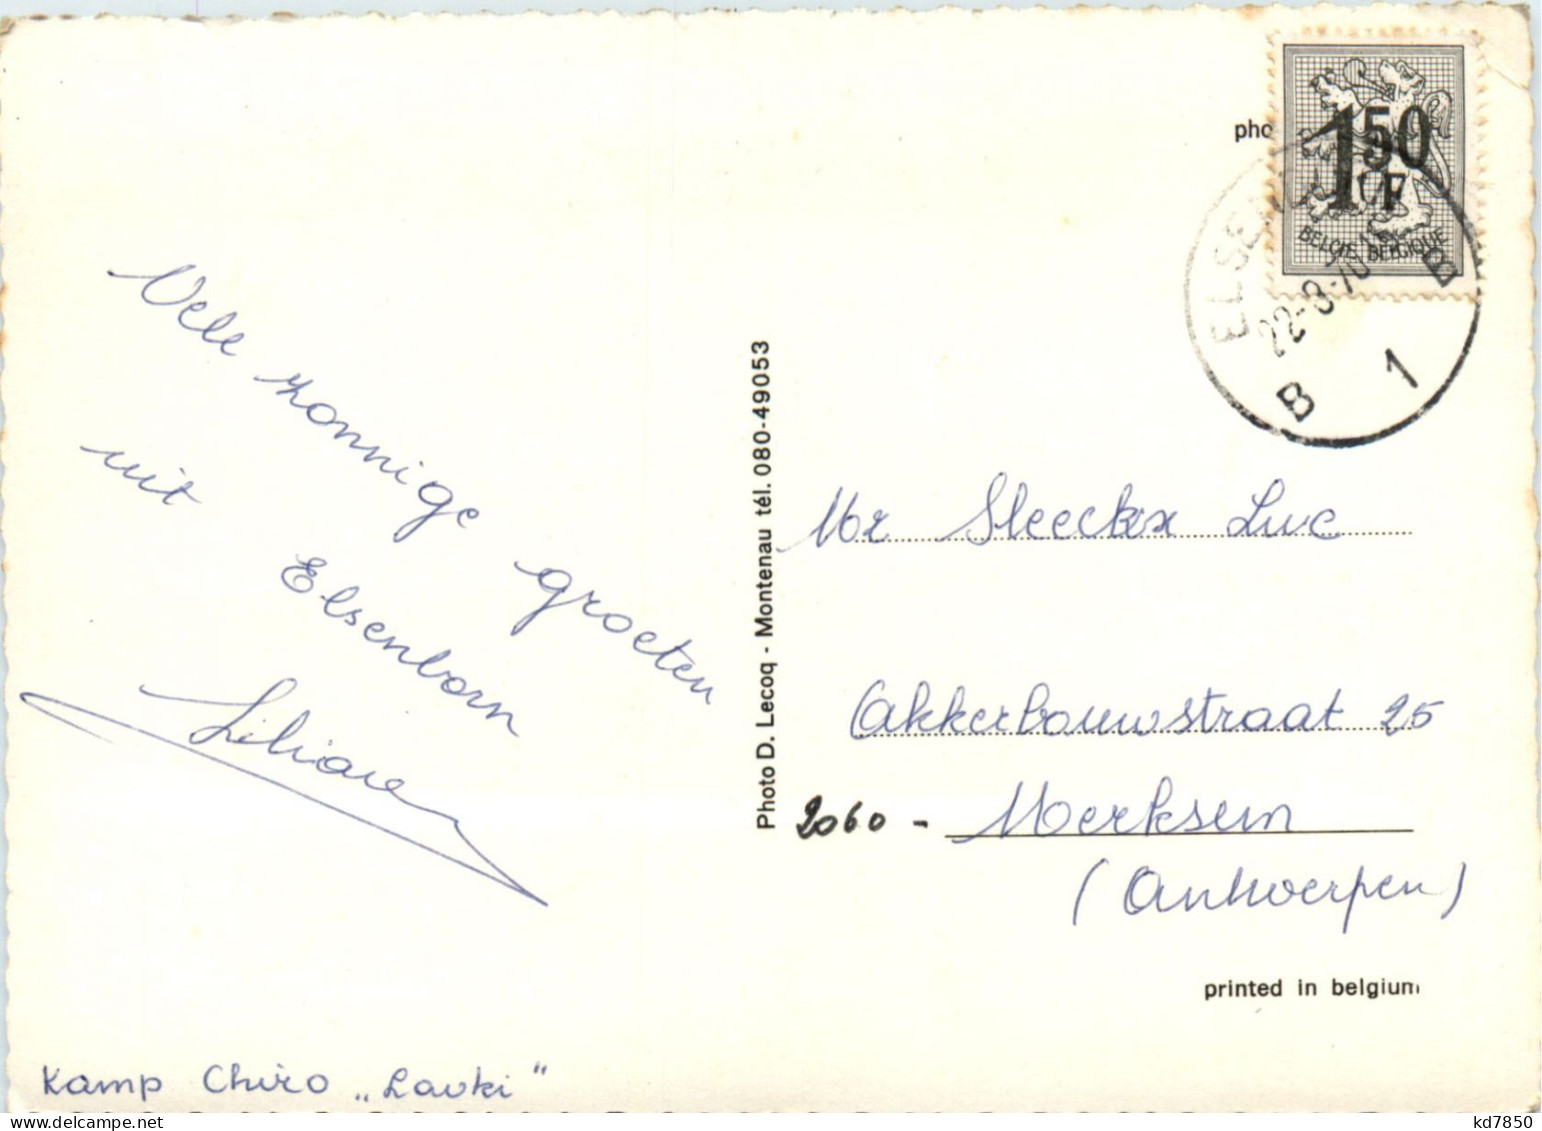 Vele zonnige groeten
uit Elsenborn
Liliane
Kamp Chiro „Lavki"
Photo D. Lecoq - Montenau tél. 080-49053
pho
1 50 F
BELGIE BELGIQUE
ELSENB
22-8-70
B 1 B
Mr Sleeckx Luc
Akkerbouwstraat 25
2060 - Merksem
(Antwerpen)
printed in belgium
kd7850